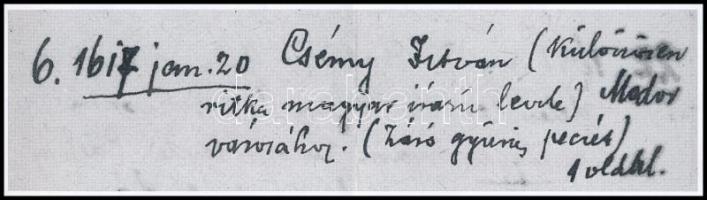 6. 1617 jan. 20 Csémy István (Különösen
ritka magyar írású levele) Modor
városához. (Záró gyűrűs pecsét)
1 oldal.